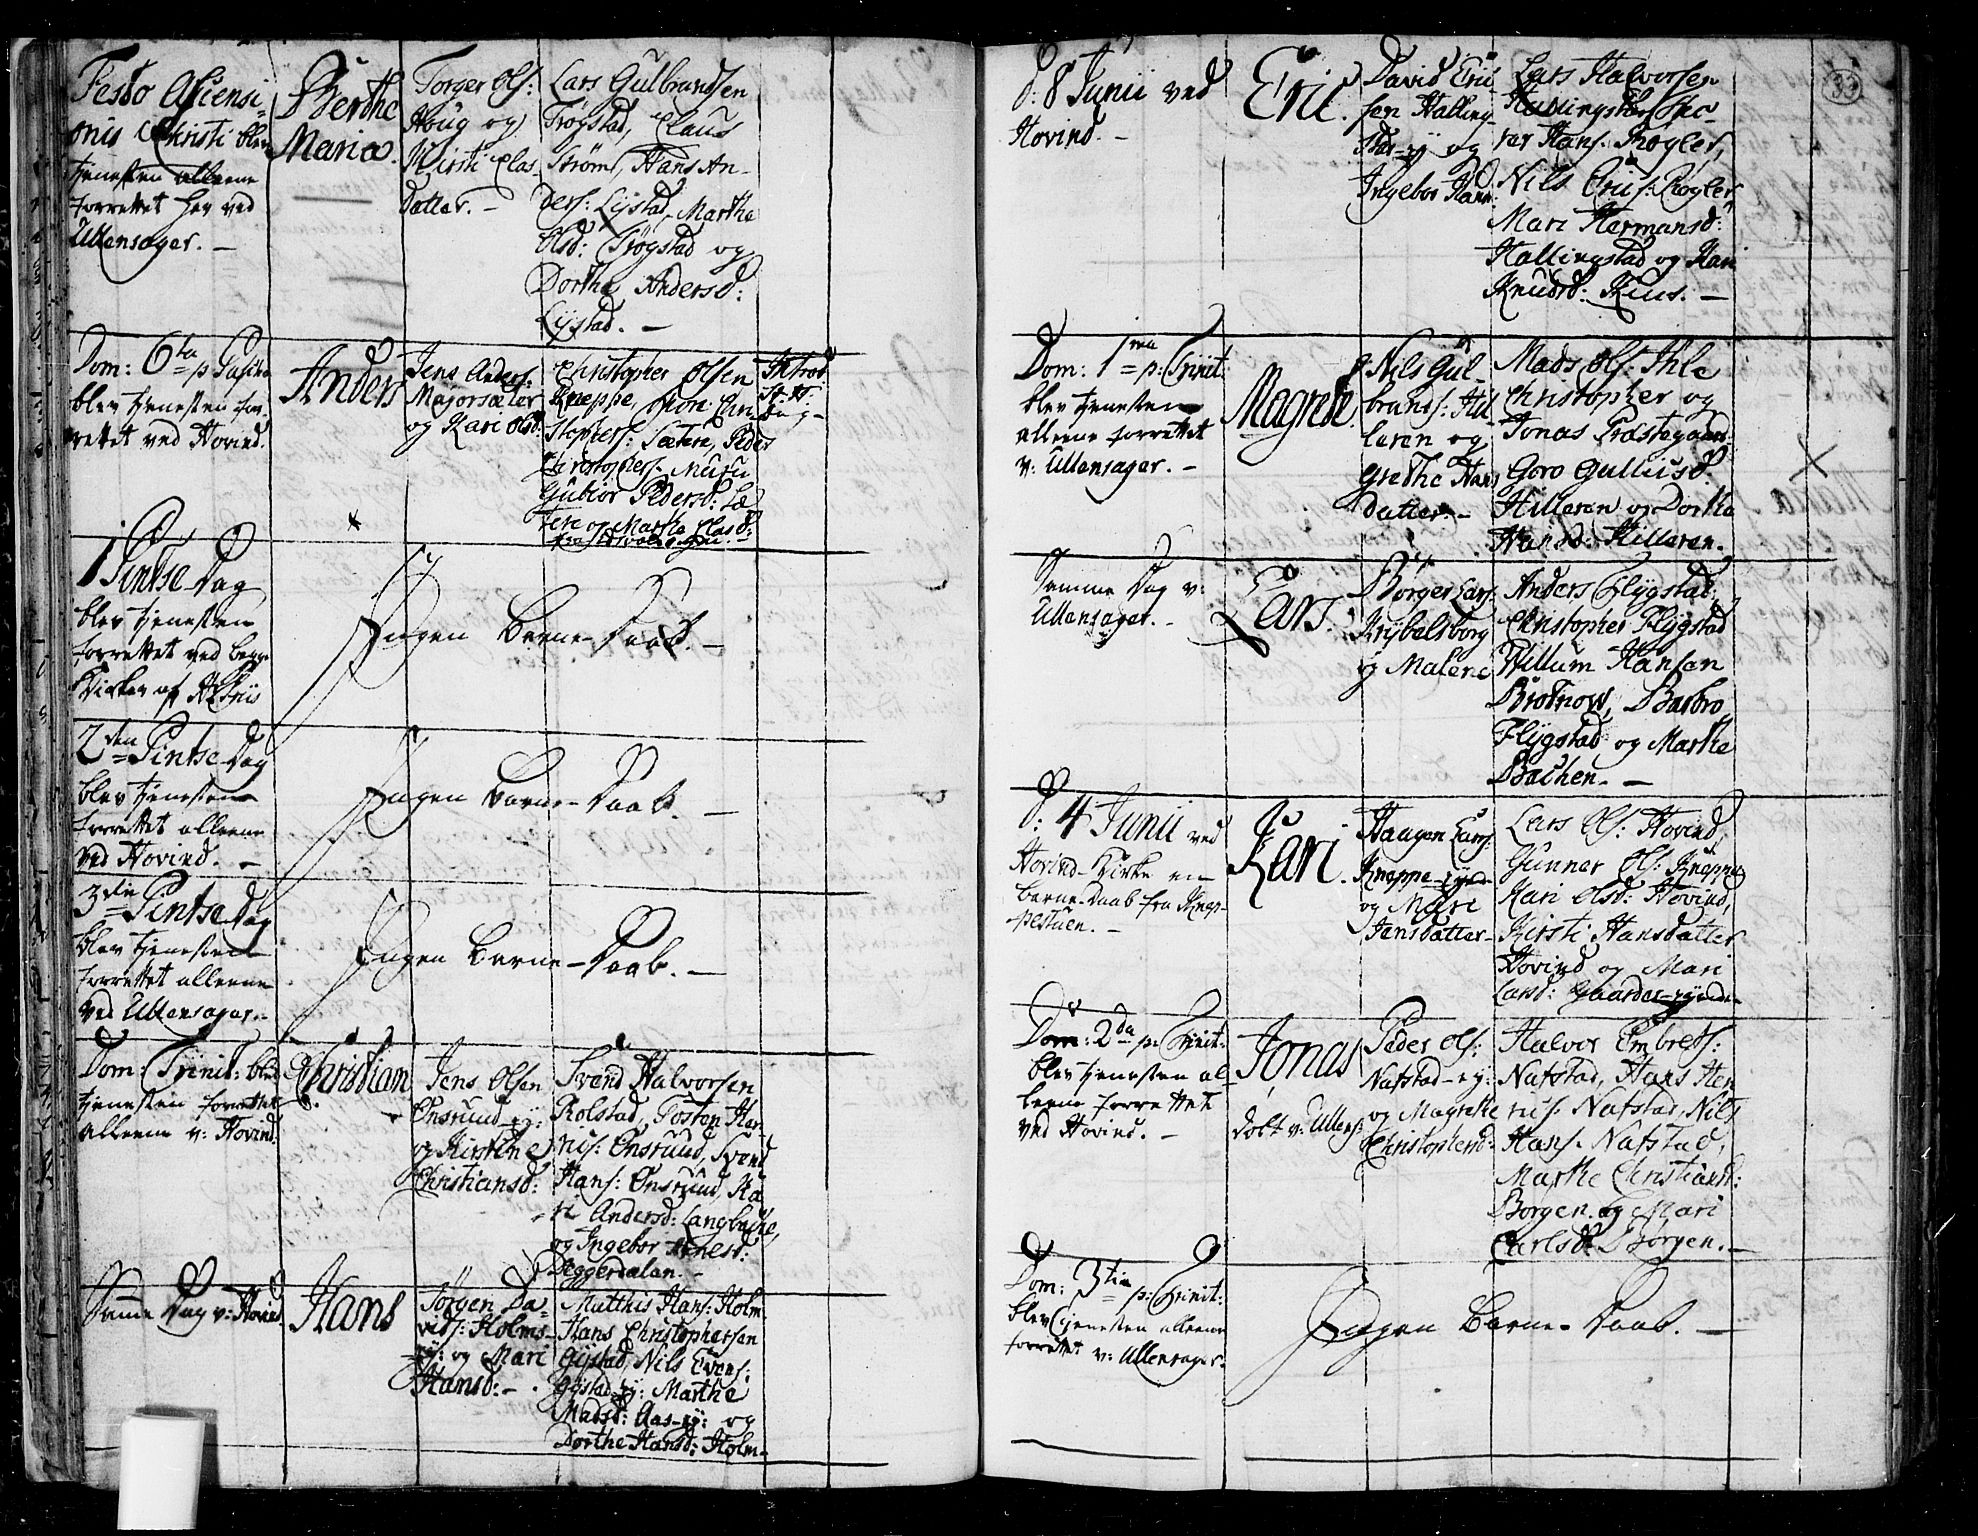 Festo Ascensi-
onis Christi blev
tjenesten alleene
forrettet her ved
Ullensager. -
Berthe
Maria.
Torger Ols:
Houg og
Kirsti Clas-
Datter. -
Lars Gulbrandsen
Trøgstad, Claus
Strøm, Hans An-
ders: Lystad, Marthe
Olsd: Trøgstad og
Dorthe Andersd:
Lystad. -
Dom: 6ta p Pasc
blev tjenesten for-
rettet ved Hovind.
Anders
Jens Anders:
Majorsæter
og Kari Olsd.
Christopher Olsen
Kneppe, Chri-
stophers: Sætere, Peder
Christophers.
Gubiør Pedersd: Sæ-
tere og Marthe Olasd:
Introd
1 Pintse Dag
blev tjenesten
forrettet ved begge
Kirker af
Ingen Barne-Daab. -
2den Pintse Dag
blev tjenesten
forrettet alleene
ved Hovind. -
Ingen Barne-Daab. -
3die Pintse Dag
blev tjenesten
forrettet alleene
ved Ullensager. -
Ingen Barne-Daab. -
Dom: Trinit: blev
tjenesten forrettet
alleene v: Hovind.
Christian
Jens Olsen
Onsrund-ej:
og Kirstine
Christiansd:
Svend Halvorsen
Rolstad, Tosten Han-
nis: Onsruud, Svend
Hans: Onsruud, Ka-
ri Andersd: Langbakke,
og Ingebor
Deggerdalen. -
Samme Dag v: Hovind
Hans
Jørgen Da-
vids: Holms-
ej: og Mari
Hansd: -
Matthis Hans: Holm
Hans Christophersen
Gistad, Nils Evens:
Gystad-ej: Marthe
Madsd: Aas-ej: og
Dorthe Hansd: Holm-
33
d: 8 Junii ved
Hovind. -
Eric.
David Eric-
sen Halling-
stad-ej og
Ingebor Hans:
Lars Halvorsen
Hallingstad,
Hans: Røgler,
Nils Erics: Røgler
Mari Hermansd:
Hallingstad og Kari
Knudsd: Kuus. -
Dom: 1ma p: Trinit:
blev tjenesten
alleene forrettet
v: Ullensager. -
Magrete.
Nils Gul-
brands: Hil-
leren og
Grethe Hans
datter. -
Mads Ols: Ihle
Christopher og
Jonas Præstegaard
Goro Gulliusd:
Hilleren og Dorthe
Hansd: Hilleren.
Samme Dag v:
Ullensager. -
Lars.
Børger Lars:
Krybelsborg
og Malene
Anders Flygstad,
Christopher Flygstad
Willum Hansen
Brotnow, Barbro
Flygstad og Marthe
Bachen. -
d: 4 Junii ved
Hovind-Kirke en
barne-Daab fra Knep-
pestuen. -
Kari.
Haagen Lars:
Kneppe-ejed
og Mari
Jensdatter-
Lars Ols: Hovind,
Gunner Ols: Kneppe
Kari Olsd: Hovind,
Kirsti Hansdatter
Hovind og Mari
Larsd: Gaarder-ejende-
Dom: 2da p: Trinit:
blev tjenesten al-
leene forrettet
ved Hovind. -
Jonas
døbt v: Ullens:
Peder Ols:
Nafstad-ej:
og Magrethe
Christophersd:
Halvor Embrets:
Nafstad, Hans Hen-
rics: Nafstad, Nils
Hans: Nafstad,
Marthe Christiansd:
Borgen og Mari
Carlsd: Borgen. -
Dom: 3tia p: Trinit:
blev tjenesten alleene
forrettet v: Ullensager.
Ingen Barne-Daab. -